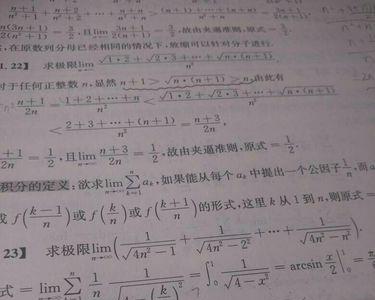 n(3n+1)/2(n²+1) = 3/2, 且lim 3n/2(n²+1) = 3/2, 故由夹逼准则, 原式 = 3/2.
, 在原数列分母已经相同的情况下, 放缩可以针对分子进行.
1.22】 求极限lim n→∞ (√(1·2) + √(2·3) + … + √(n·(n+1)))/n²
对于任何正整数 n, 显然 n+1 > √(n·(n+1)) > n, 由此有
(n+1)/2n = (1+2+…+n)/n² < (√(1·2) + √(2·3) + … + √(n·(n+1)))/n²
< (2+3+…+(n+1))/n² = (n+3)/2n,
+1/2n = 1/2, 且lim n→∞ (n+3)/2n = 1/2, 故由夹逼准则, 原式 = 1/2.
积分的定义: 欲求lim n→∞ ∑ k=1 n aₖ, 如果能从每个 aₖ 中提出一个公因子 1/n, 而
或 f((k−1)/n) 或 f(k/n) 或 f((k+1)/n) 的形式, 这里 k 从 1 到 n, 则原式 =
23】 求极限lim n→∞ (1/√(4n²−1) + 1/√(4n²−2²) + … + 1/√(4n²−n²))
式 = lim n→∞ ∑ k=1 n 1/n · 1/√(4−(k/n)²) = ∫₀¹ 1/√(4−x²) = arcsin x/2 |₀¹ =